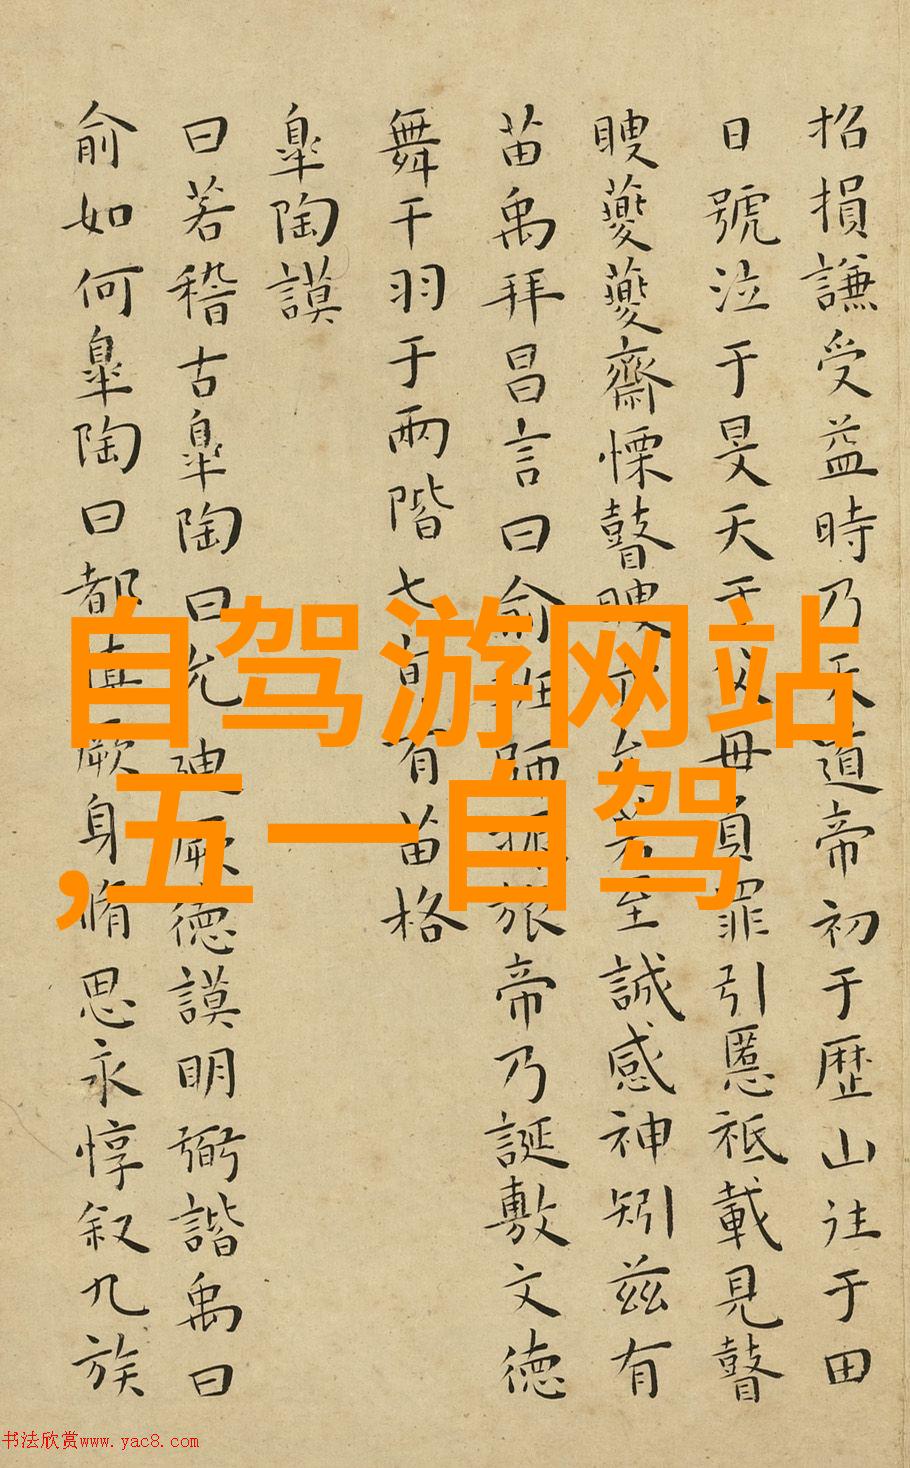 招損謙受益時乃天道帝初于歴山往于田
日號泣于旻天于父母負罪引慝祗載見瞽
瞍夔夔齋慄瞽瞍亦允若至誠感神矧茲有
苗禹拜昌言曰俞班師振旅帝乃誕敷文德
舞干羽于兩階七旬有苗格
皐陶謨
曰若稽古皐陶曰允迪厥德謨明弼諧禹曰
俞如何皐陶曰都慎厥身脩思永惇叙九族
自驾游网站
,五一自驾
书法欣赏www.yac8.com